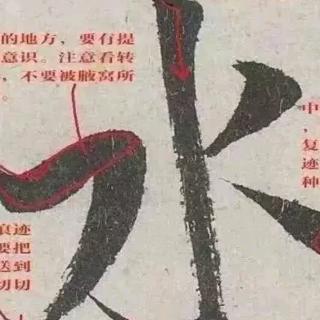 的地方，要有提
意识。注意看转
，不要被腋窝所
。
中
，
复
迹
种
痕迹
要把
送到
切切